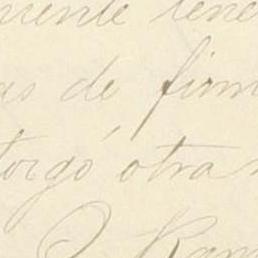 mente tene
as de firm
torgó otra
D Ram